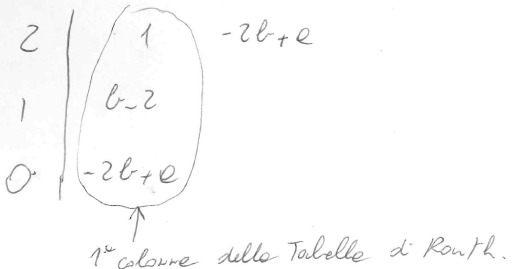 2 | 1 -2b+a
1 | b-2
0 | -2b+a
1ª colonna della Tabella di Routh.